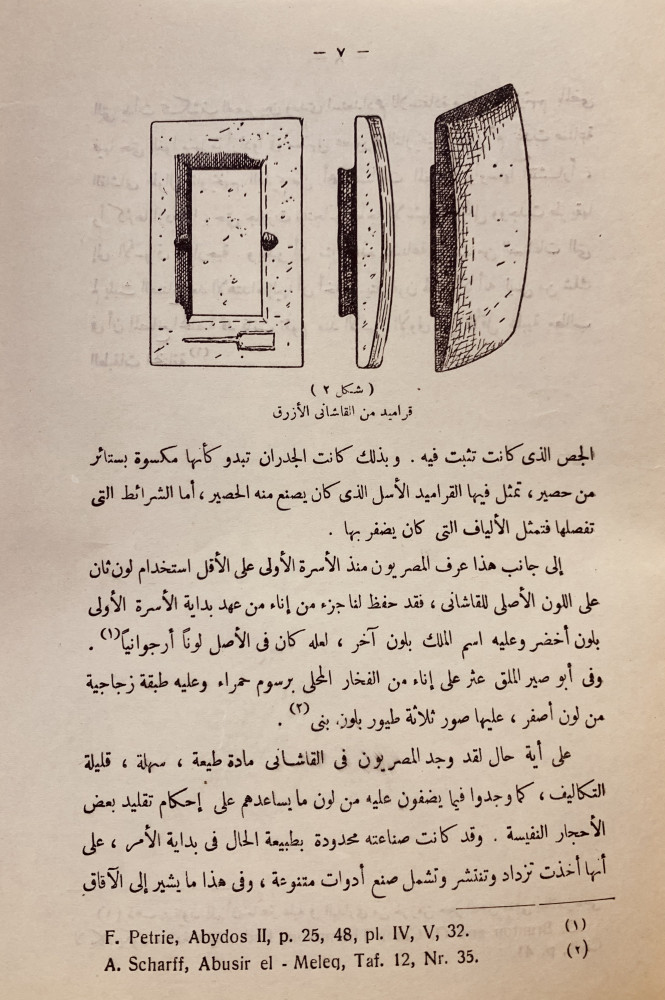 — ٧ —
( شكل ٢ )
قراميد من القاشانى الأزرق
الجص الذى كانت تثبت فيه . وبذلك كانت الجدران تبدو كأنها مكسوة بستائر
من حصير ، تمثل فيها القراميد الأسل الذى كان يصنع منه الحصير ، أما الشرائط التى
تفصلها فتمثل الألياف التى كان يضفر بها .
إلى جانب هذا عرف المصريون منذ الأسرة الأولى على الأقل استخدام لون ثان
على اللون الأصلى للقاشانى ، فقد حفظ لنا جزء من إناء من عهد بداية الأسرة الأولى
بلون أخضر وعليه اسم الملك بلون آخر ، لعله كان فى الأصل لوناً أرجوانياً(١) .
وفى أبو صير الملق عثر على إناء من الفخار المحلى برسوم حمراء وعليه طبقة زجاجية
من لون أصفر ، عليها صور ثلاثة طيور بلون بنى(٢) .
على أية حال لقد وجد المصريون فى القاشانى مادة طيعة ، سهلة ، قليلة
التكاليف ، كما وجدوا فيما يضفون عليه من لون ما يساعدهم على إحكام تقليد بعض
الأحجار النفيسة . وقد كانت صناعته محدودة بطبيعة الحال فى بداية الأمر ، على
أنها أخذت تزداد وتنتشر وتشمل صنع أدوات متنوعة ، وفى هذا ما يشير إلى الآفاق
F. Petrie, Abydos II, p. 25, 48, pl. IV, V, 32. (١)
A. Scharff, Abusir el - Meleq, Taf. 12, Nr. 35. (٢)